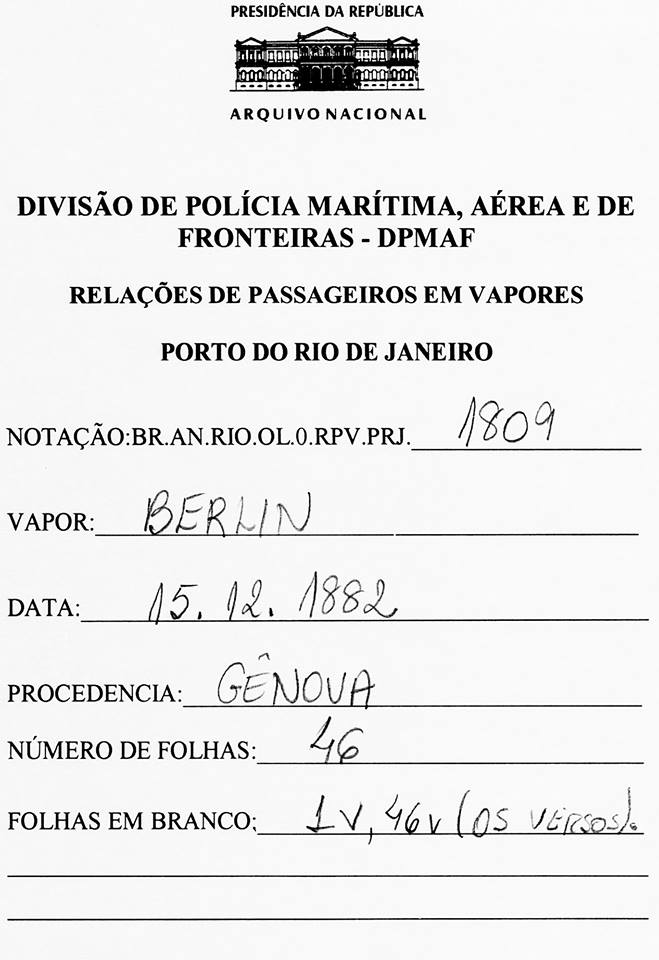 PRESIDÊNCIA DA REPÚBLICA
ARQUIVO NACIONAL
DIVISÃO DE POLÍCIA MARÍTIMA, AÉREA E DE
FRONTEIRAS - DPMAF
RELAÇÕES DE PASSAGEIROS EM VAPORES
PORTO DO RIO DE JANEIRO
NOTAÇÃO:BR.AN.RIO.OL.0.RPV.PRJ. 1809
VAPOR: BERLIN
DATA: 15. 12. 1882
PROCEDENCIA: GÊNOVA
NÚMERO DE FOLHAS: 46
FOLHAS EM BRANCO: 1v, 46v (OS VERSOS).